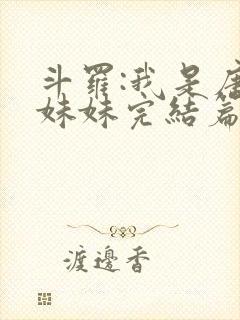 斗羅:我是唐
妹妹完結篇
渡邊香